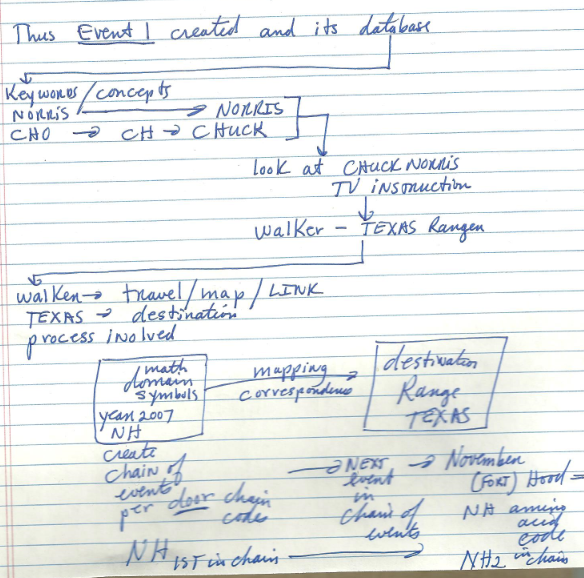 Thus Event 1 created and its database
Keywords/concepts
NORRIS → NORRIS
CHO → CH → CHUCK
look at CHUCK NORRIS
TV insTruction
walker - TEXAS Ranger
walker → travel/map/LINK
TEXAS → destination
process inolved
math
domain
symbols
year 2007
NH
mapping
correspondence
destination
Range
TEXAS
create
chain of
events
per door chain
code
→ NEXT
event
in
chain of
events
→ November
(FORT) Hood =
NH amino
acid
code
NH 1ST in chain → NH2 in chain